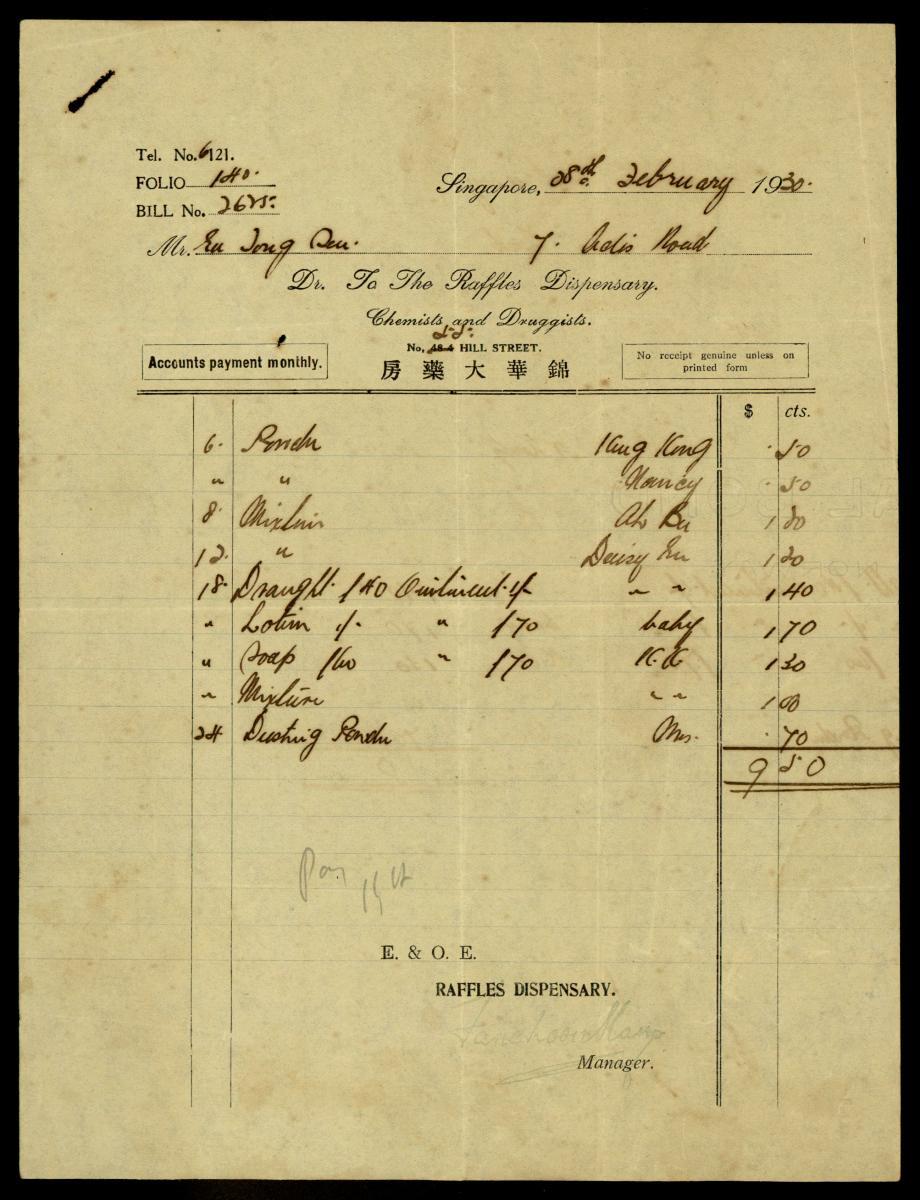 Tel. No. 6121.
FOLIO 140.
BILL No. 2625.
Singapore, 28th February 1930.
Mr. Eu Tong Sen. 7. Adis Road
Dr. To The Raffles Dispensary.
Chemists and Druggists.
No, 48-4 HILL STREET.
Accounts payment monthly.
房藥大華錦
No receipt genuine unless on
printed form
$ cts.
6. King Kong . 50
" " Nancy . 50
8. Mixture Ah
12. " Daisy Eu
18. Draught 1/40 Ointment " " 1 40
" Lotion " 1/70 baby 1 70
" Soap /60 " /70 K.K 1 30
" Mixture " " 1 00
24 Dusting Mrs. . 70
9 50
Pay
E. & O. E.
RAFFLES DISPENSARY.
Manager.